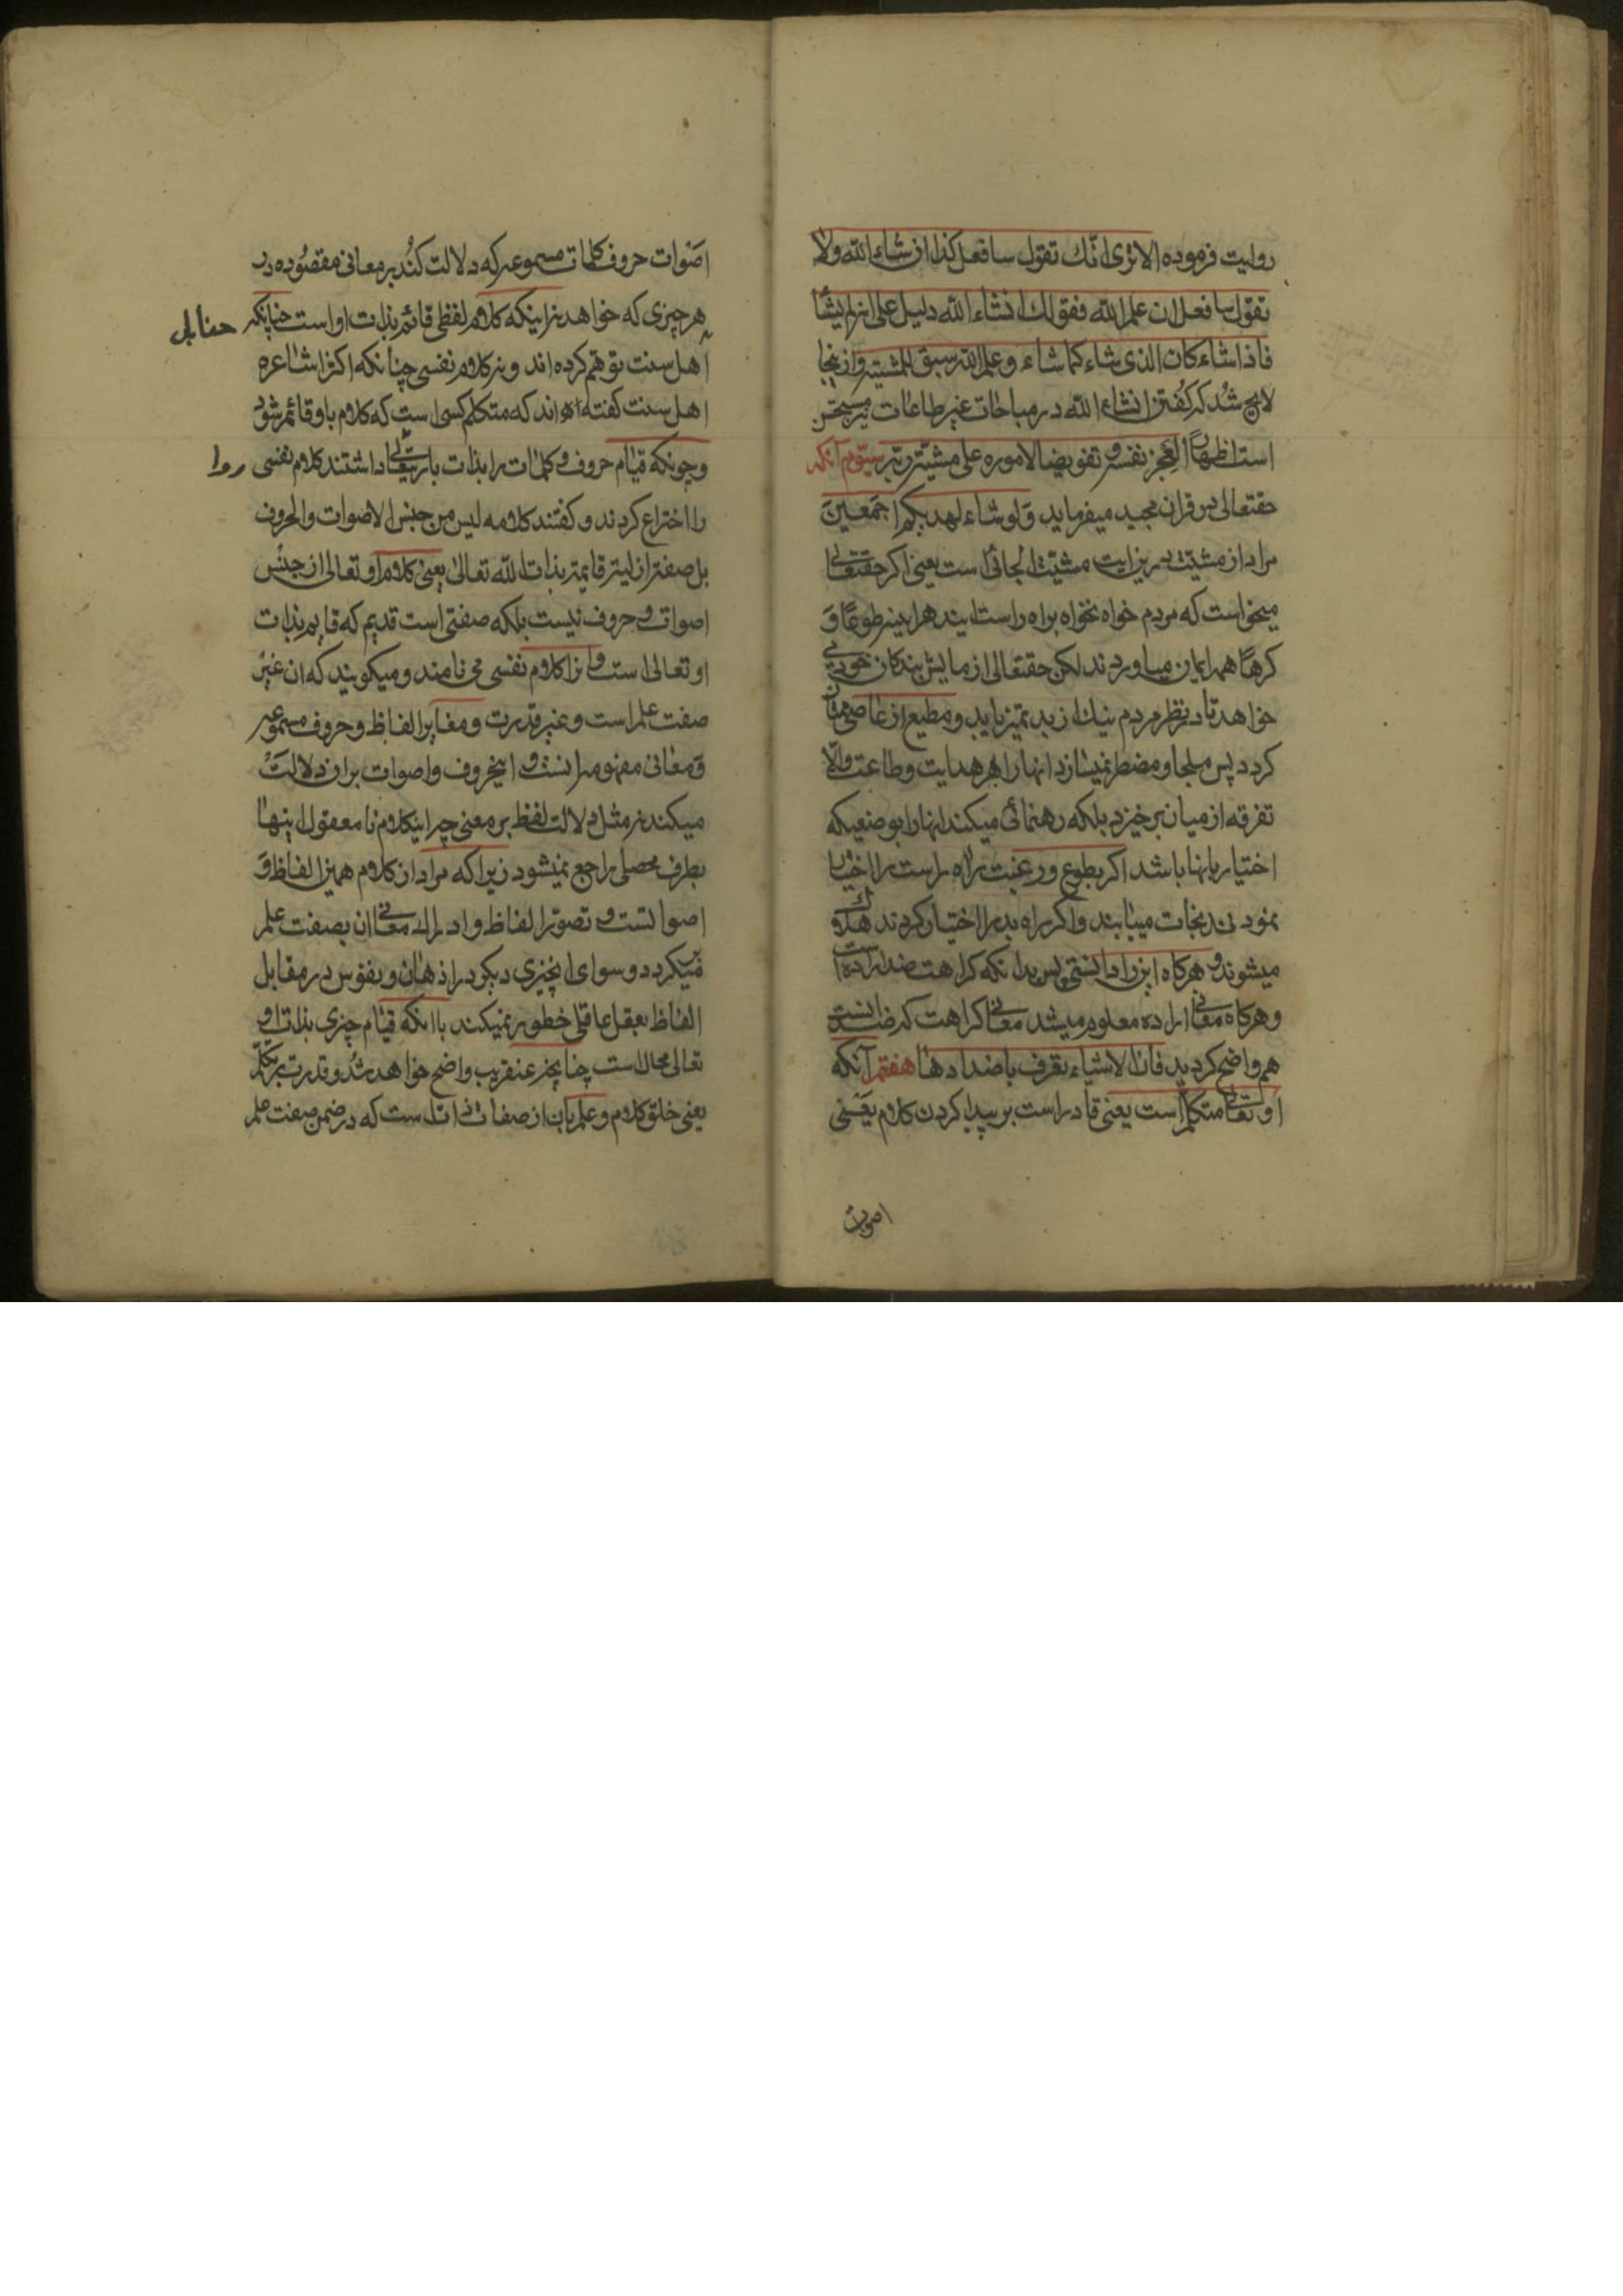 روایت فرموده الا تری انّك تقول سافعل کذا ان شاء الله ولا
تقول سافعل ان علم الله فقولك ان شاء الله دلیل علی انه لم یشأ
فاذا شاء کان الذی شاء کما شاء و علم الله سبق المشیته و ازینجا
لایح شد که گفتن انشاء الله در مباحات غیر طاعات نیز مستحسن
است اظهارًا لعجز نفسه و تفویضا لاموره علی مشیته ربه سیّوم آنکه
حقتعالی در قران مجید میفرماید وَلو شاء لهدیکم اجمَعینَ
مراد از مشیّت درین ایت مشیّت الجائی است یعنی اکر حقتعالی
میخواست که مردم خواه نخواه براه راست ایند هر اینه طوعًا وَ
کرهًا همه ایمان میاوردند لکن حقتعالی ازمایش بندکان خود می
خواهد تا در نظر مردم نیك از بد تمیز یابد و مطیع از عاصی ممتاز
کردد پس ملجا و مضطر نمیسازد انها را بهر هدایت وطاعت والّا
تفرقه از میان برخیزد بلکه رهنمائی میکند انها را بوضعیکه
اختیار بانها باشد اکر بطوع و رغبت راه راست را اختیار
نمودند نجات مییابند و اکر راه بد را اختیار کردند هلاك
میشوند و هرکاه این را دانستی پس بدانکه کراهت ضد اراده است
و هرکاه معانی اراده معلوم میشد معانی کراهت که ضد انست
هم واضح کردید فان الاشیاء تعرف باضدادها هفتم آنکه
او تعالی متکلّم است یعنی قادر است بر پیدا کردن کلام یعَنی
اصوات
اصَوات حروف کلمات مسموعه که دلالت کنُند بر معانی مقصوُده در
هر چیزی که خواهد نه اینکه کلام لفظی قائم بذات او است چنانکه حنابله
اهل سنت توهّم کرده اند و نه کلام نفسی چنانکه اکثر اشاعره
اهل سنت کفته اند که متکلم کسی است که کلام باو قائم شود
و چونکه قیام حروف و کلمات را بذات باریتعالی روا داشتند کلام نفسی
را اختراع کردند و کفتند کلامه لیس من جنس الاصوات والحروف
بل صفة ازلیة قایمة بذات الله تعالی یعنی کلام او تعالی از جنسِ
اصوات و حروف نیست بلکه صفتی است قدیم که قایم بذات
او تعالی است و انرا کلام نفسی می نامند و میکویند که ان غیر
صفت علم است و غیر قدرت و مغایر الفاظ و حروف مسموعه
وَ معانی مفهومه انست و اینحروف و اصوات بران دلالَت
میکند نه مثل دلالت لفظ بر معنی چرا اینکلام نا معقول اینها
بطرف محصلی راجع نمیشود زیرا که مراد از کلام همین الفاظ وَ
اصواتست و تصوّر الفاظ و ادراك معانی ان بصفت علم
میکردد و سوای اینچیزی دیکر در اذهان و نفوس در مقابل
الفاظ بعقل عاقلی خطور نمیکند باانکه قیام چیزی بذات او
تعالی محال است چنانچه عنقریب واضح خواهد شُد و قدرت بر تکلّم
یعنی خلق کلام و علم بان از صفات ذات است که در ضمن صفت علم